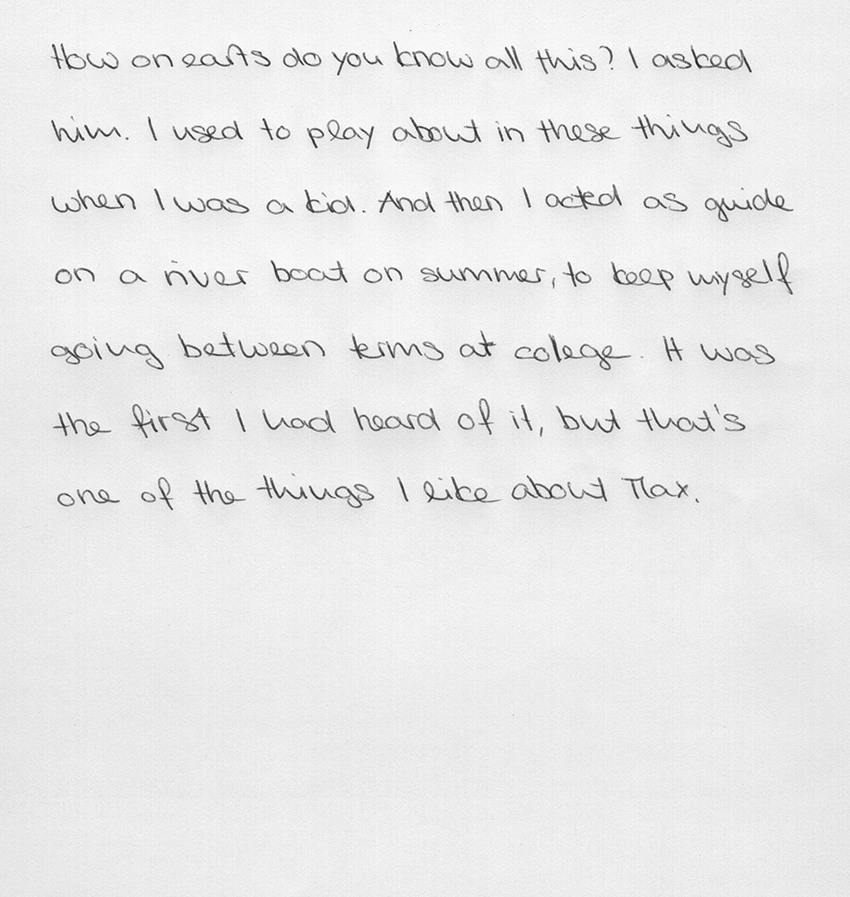 How on earts do you know all this? I asked
him. I used to play about in these things
when I was a kid. And then I acted as guide
on a river boat on summer, to keep myself
going between terms at colege. It was
the first I had heard of it, but that's
one of the things I like about Max.